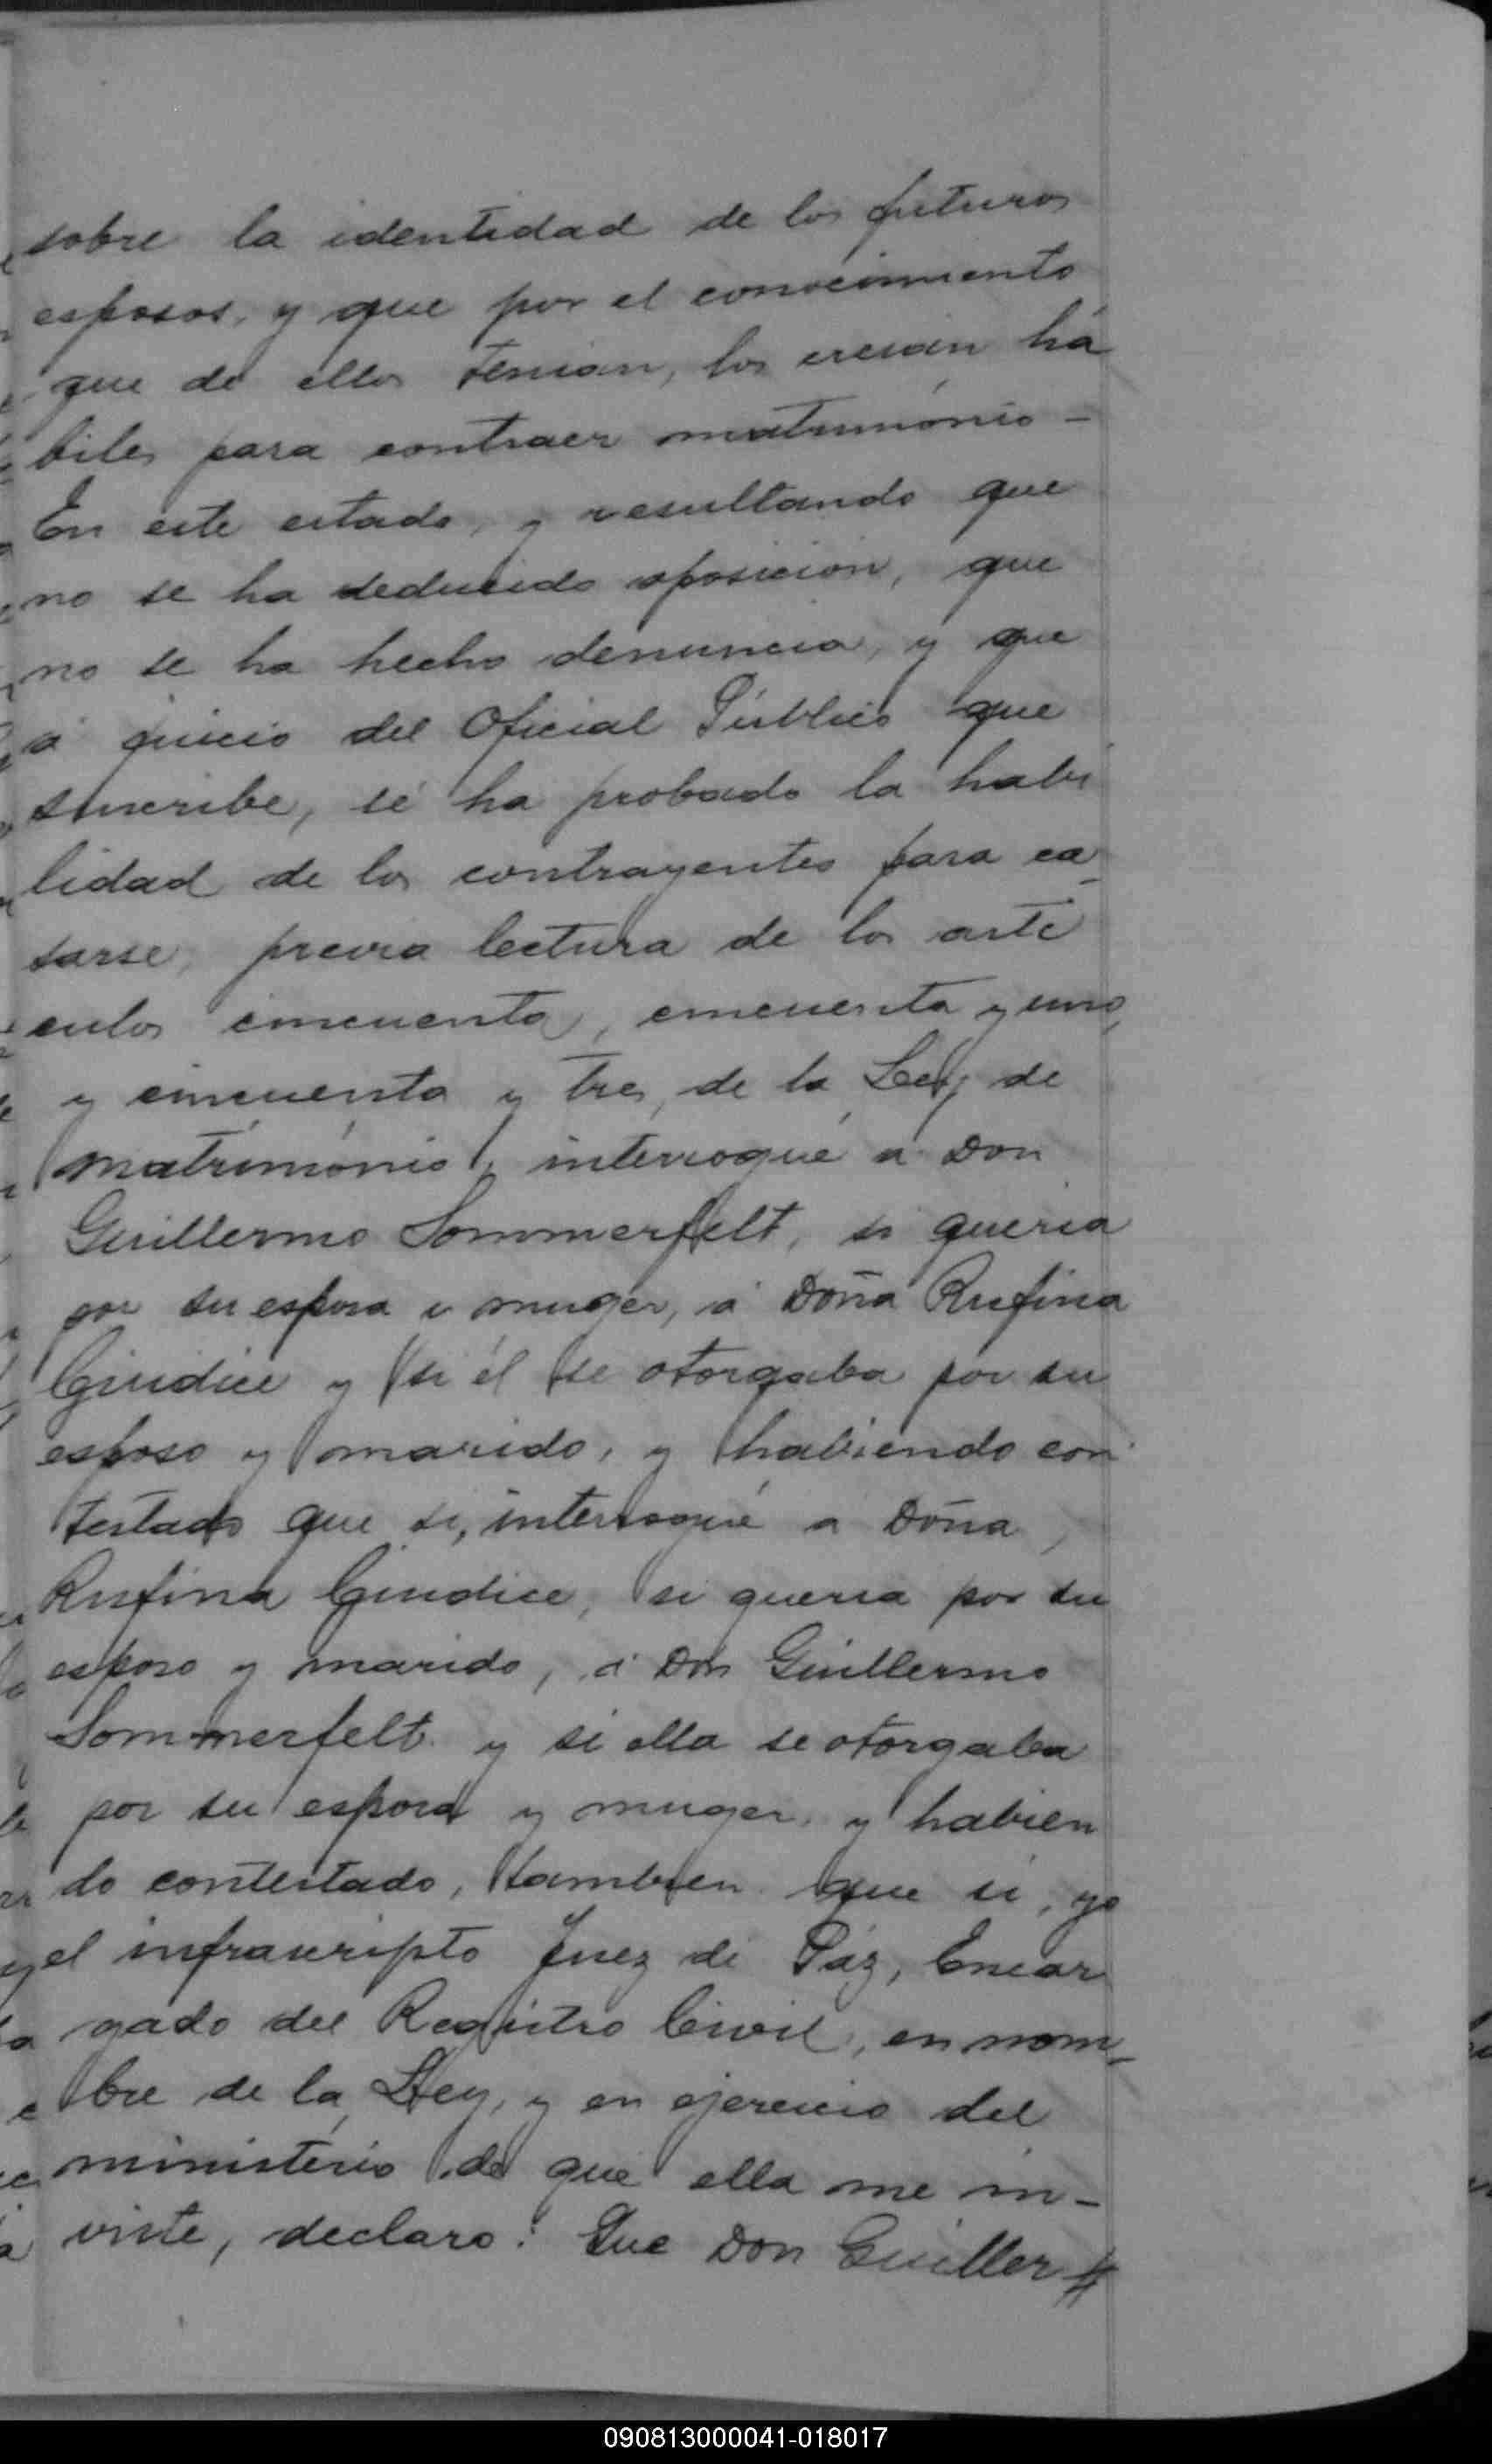 sobre la identidad de los futuros
esposos, y que por el conocimiento
que de ellos tenian, los creian há
biles para contraer matrimónio -
En este estado, y resultando que
no se ha deducido oposición, que
no se ha hecho denuncia, y que
á juicio del Oficial Público que
suscribe, se ha probado la habi
lidad de los contrayentes para ca-
sarse, previa lectura de los artí
culos cincuenta, cincuenta y uno,
y cincuenta y tres, de la Ley de
matrimónio, interrogué á Don
Guillermo Sommerfelt, si queria
por su esposa y muger, á Doña Rufina
Giudice y si él se otorgaba por su
esposo y marido, y habiendo con
testado que si, interrogué a Doña,
Rufina Giudice, si queria por su
esposo y marido, á Don Guillermo
Sommerfelt y si ella se otorgaba
por su esposa y muger, y habien
do contestado, tambien que si, yo
el infrascripto Juez de Páz, Encar
gado del Registro Civil, en nom-
bre de la Ley, y en ejercicio del
ministério de que ella me in-
viste, declaro: Que Don Guiller #
090813000041-018017